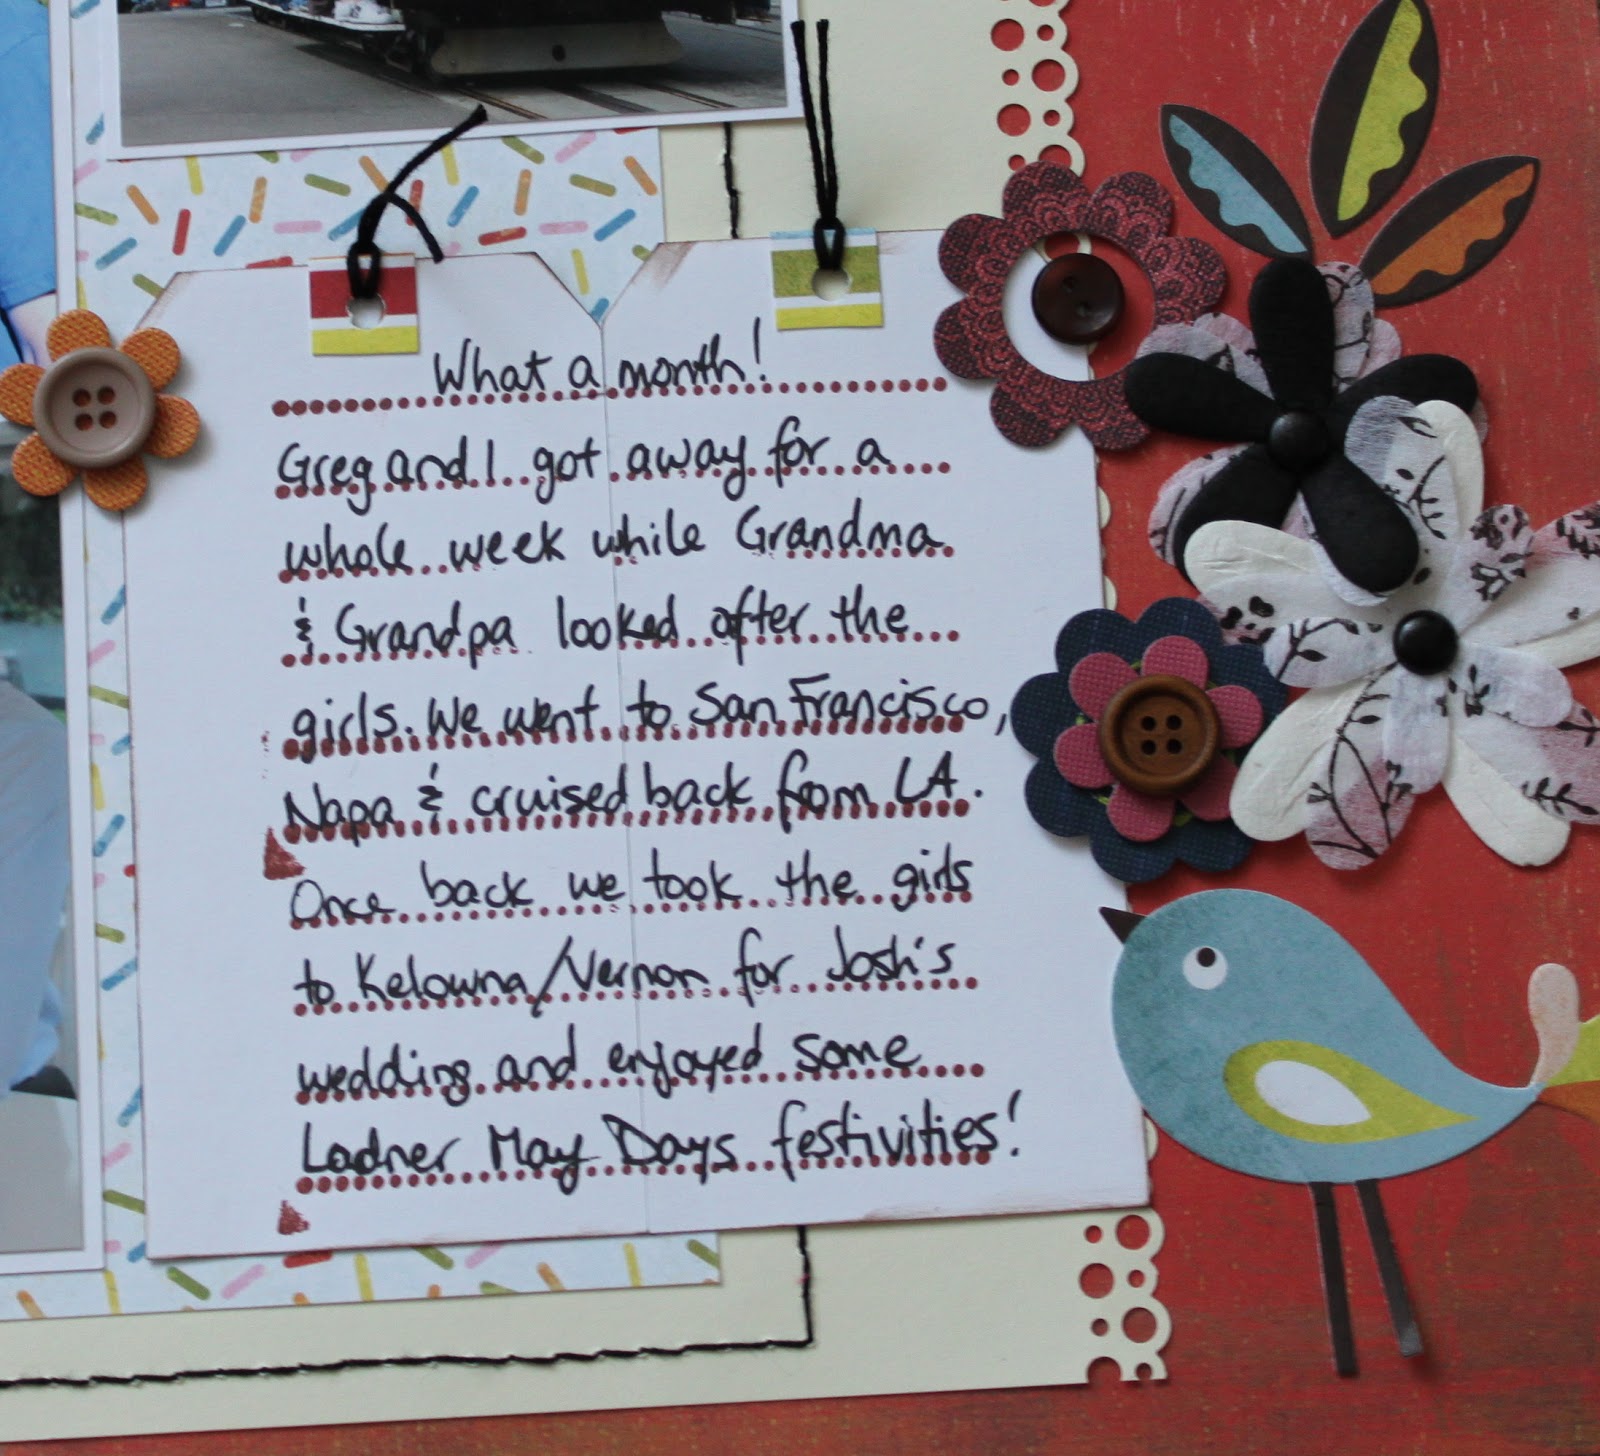 What a month!
Greg and I got away for a
whole week while Grandma
& Grandpa looked after the
girls. We went to San Francisco,
Napa & cruised back from LA.
Once back we took the girls
to Kelowna/Vernon for Josh's
wedding and enjoyed some
Ladner May Days festivities!